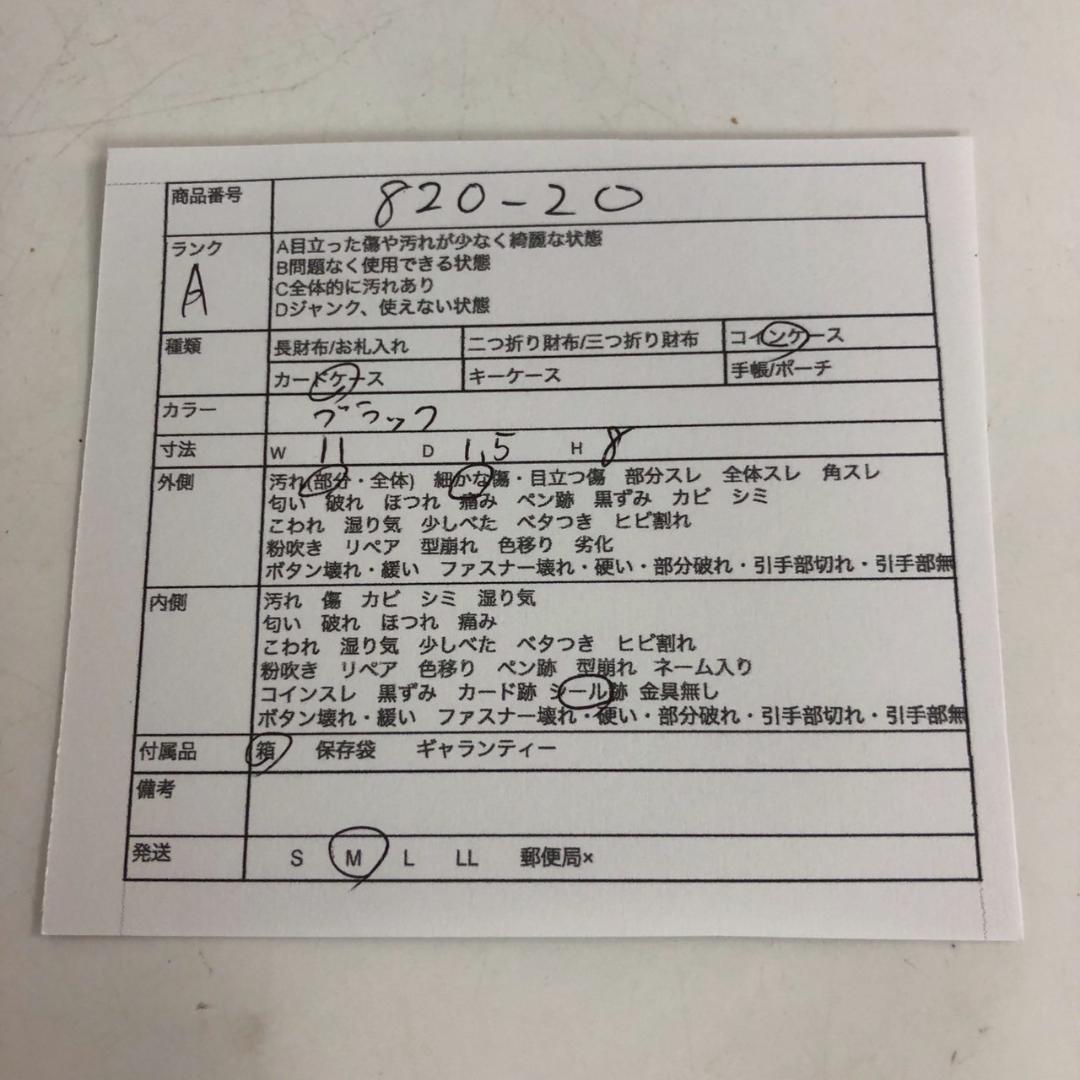 商品番号 820-20
ランク A目立った傷や汚れが少なく綺麗な状態
A B問題なく使用できる状態
C全体的に汚れあり
Dジャンク、使えない状態
種類 長財布/お札入れ 二つ折り財布/三つ折り財布 コインケース
カードケース キーケース 手帳/ポーチ
カラー ブラック
寸法 W 11 D 1,5 H 8
外側 汚れ(部分・全体) 細かな傷・目立つ傷 部分スレ 全体スレ 角スレ
匂い 破れ ほつれ 痛み ペン跡 黒ずみ カビ シミ
こわれ 湿り気 少しべた ベタつき ヒビ割れ
粉吹き リペア 型崩れ 色移り 劣化
ボタン壊れ・緩い ファスナー壊れ・硬い・部分破れ・引手部切れ・引手部無
内側 汚れ 傷 カビ シミ 湿り気
匂い 破れ ほつれ 痛み
こわれ 湿り気 少しべた ベタつき ヒビ割れ
粉吹き リペア 色移り ペン跡 型崩れ ネーム入り
コインスレ 黒ずみ カード跡 シール跡 金具無し
ボタン壊れ・緩い ファスナー壊れ・硬い・部分破れ・引手部切れ・引手部無
付属品 箱 保存袋 ギャランティー
備考
発送 S M L LL 郵便局×